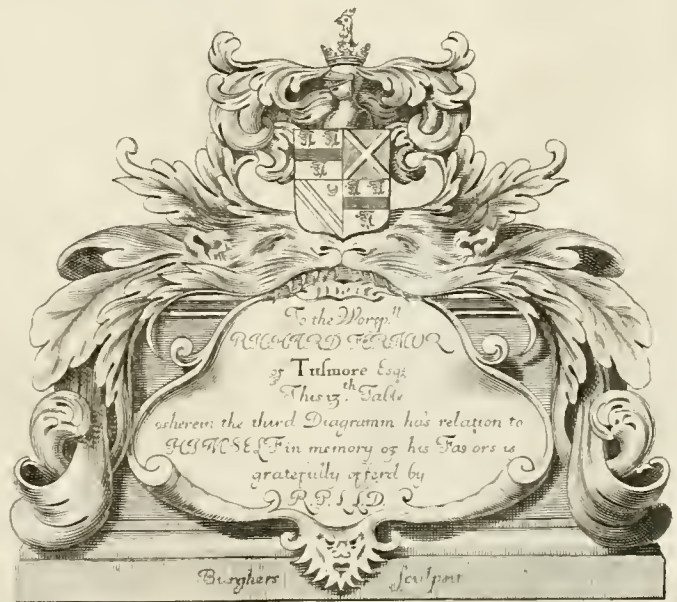 To the Worspll
RICHARD FERMOR
of Tusmore Esqr
This 13th Table
wherein the third Diagramm has relation to
HIMSELF in memory of his Favors is
gratefully offerd by
R.P. LLD.
Burghers sculpsit